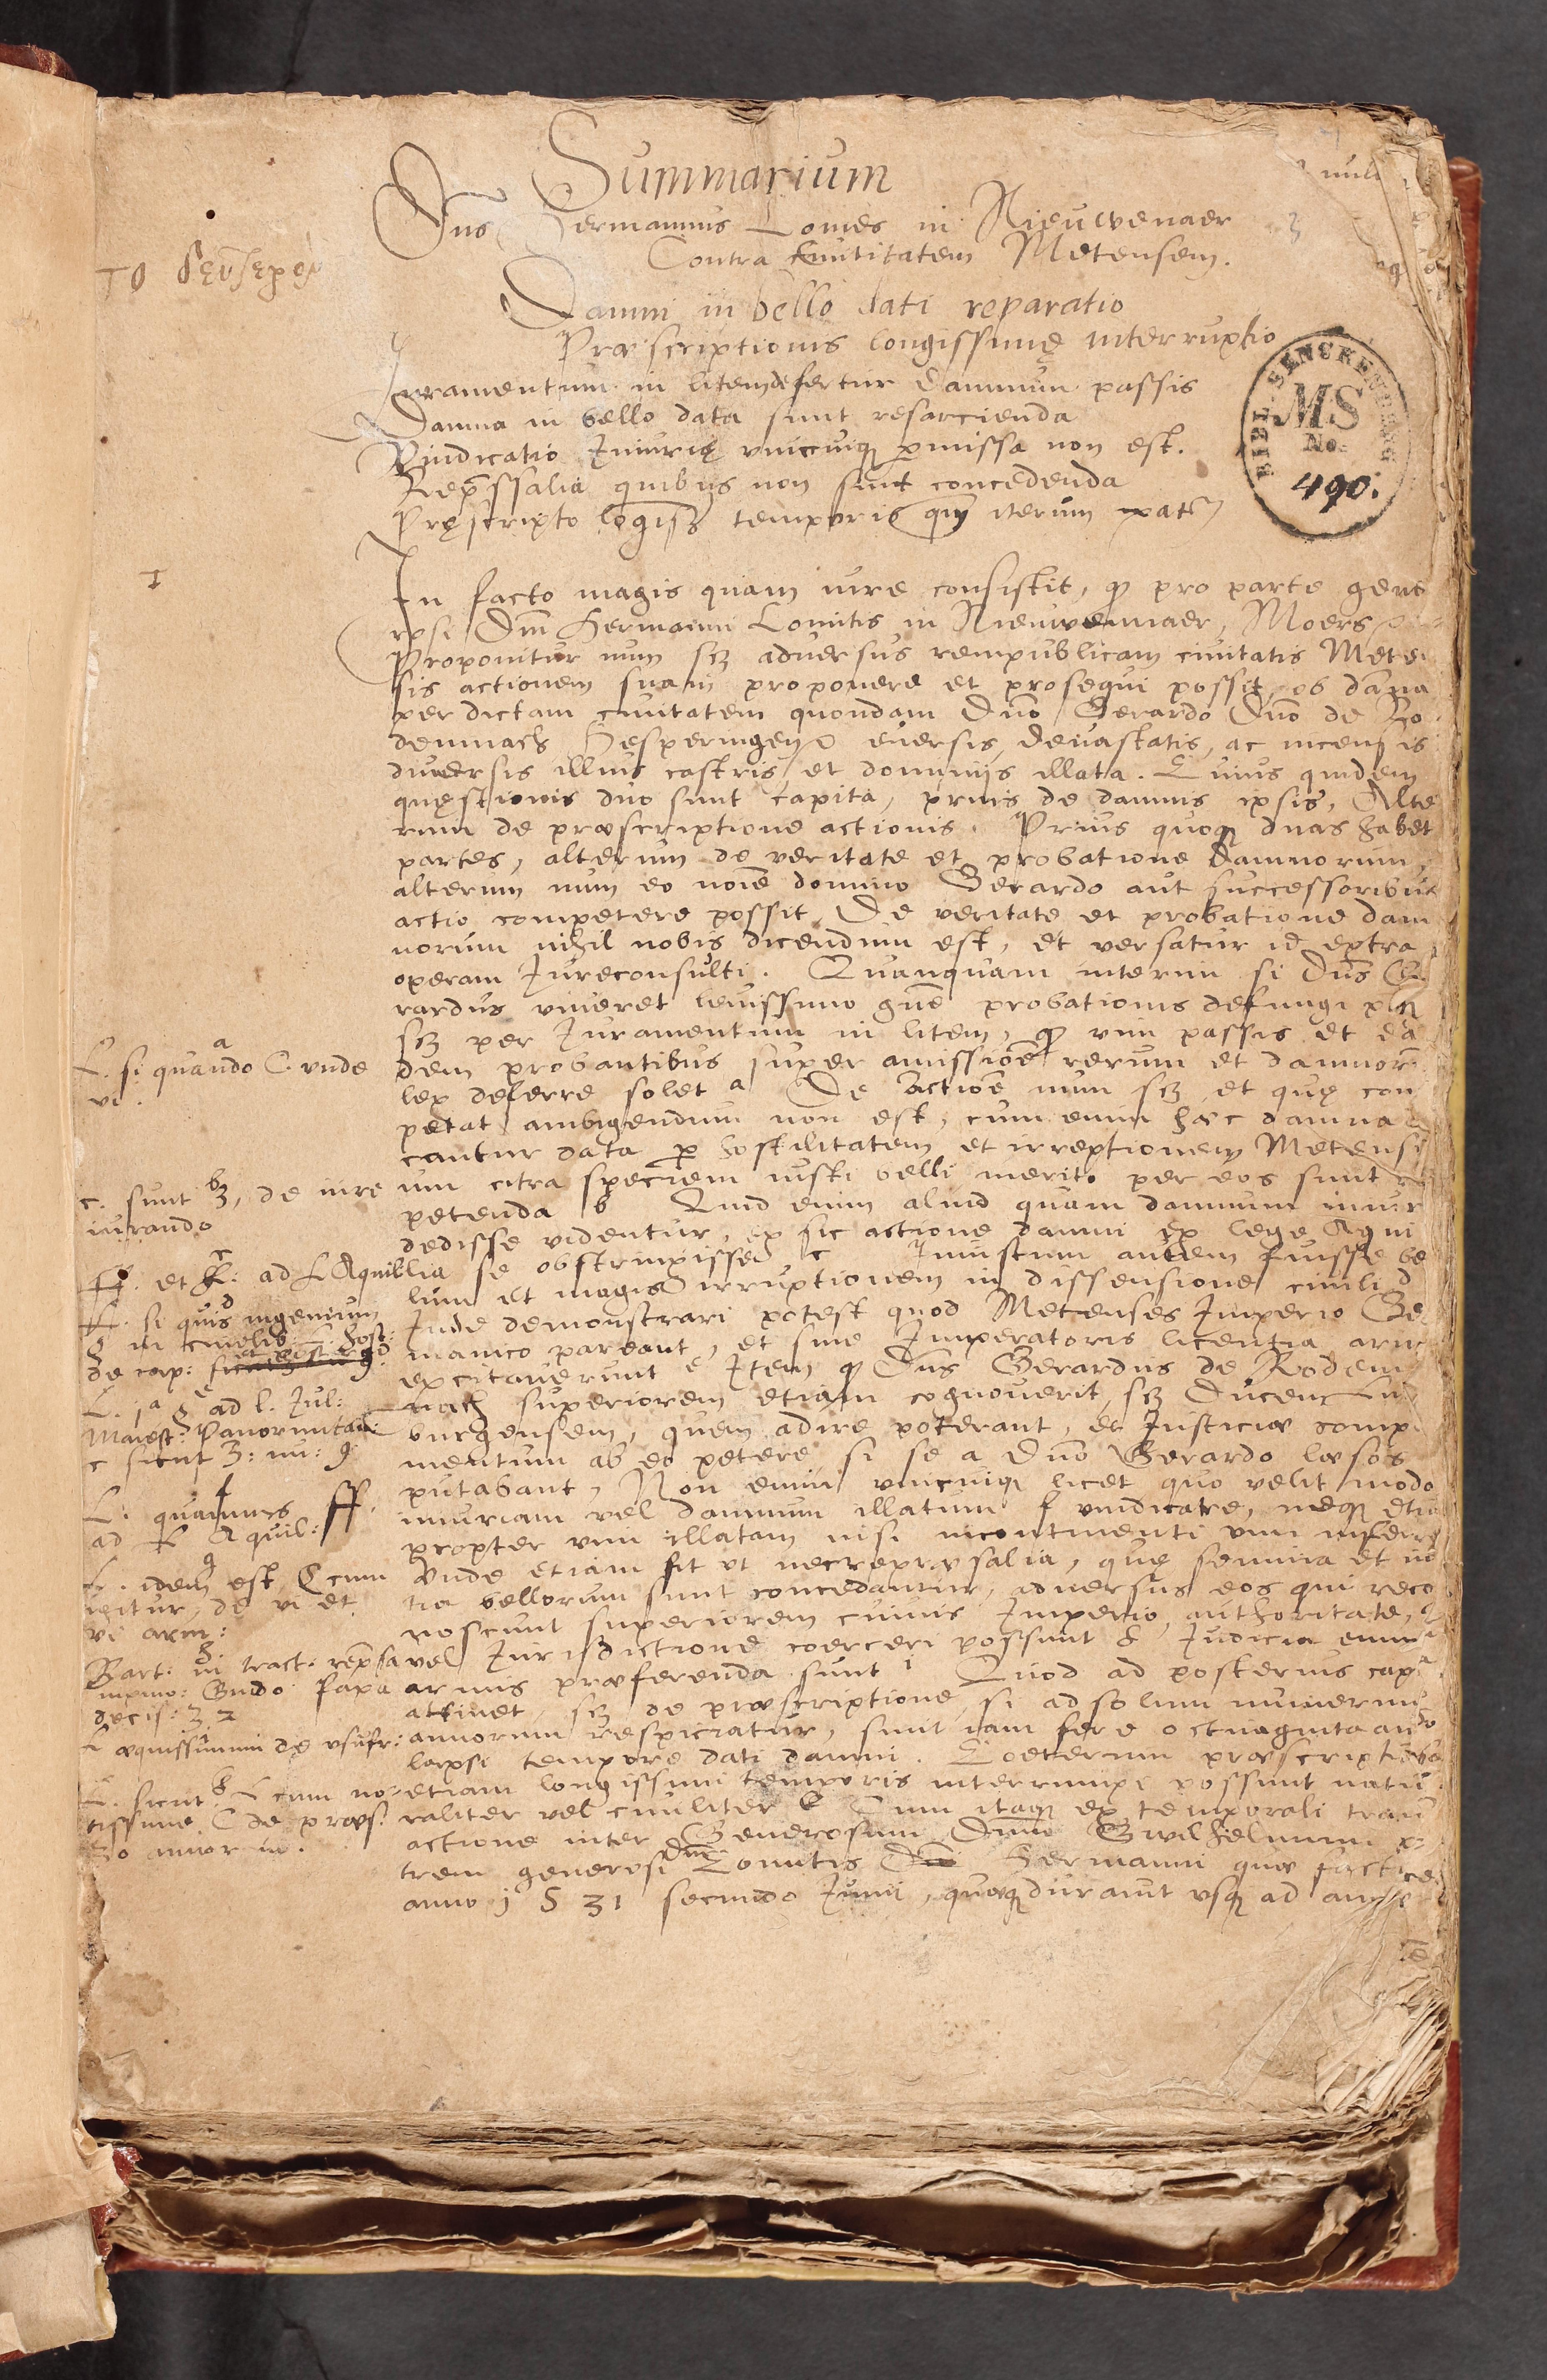 Summarium
Dns Hermannus Comes in Nieuwenaer
Contra Civitatem Metensem.
Damni in bello dati reparatio
Præscriptionis longissimę interruptio
Juramentum in litem defertur damnum passis
Damna in bello data sunt resarcienda
Vindicatio Iniurię vnicuiq permissa non est.
Repssalia quibus non sint concedenda
Pręscripto logiss temporis iterum
BIBL. SENCKENBERG
MS
No.
490.
TO δεύτερον
1
In facto magis quam iure consistit, quod pro parte gene
rosi Dni Hermanni Comitis in Nieuwennaer, Moers
Proponitur num scz aduersus rempublicam ciuitatis Meten
sis actionem suam proponere et prosequi possit, ob damna
per dictam ciuitatem quondam Dno Gerardo Dno de Ro
denmach Hesperingen euersis, deuastatis, ac incensis
diuersis illius castris, et dominijs illata. Cuius quidem
quęstionis duo sunt capita, prius de damnis ipsis, Alte
rum de præscriptione actionis. Prius quoq duas habet
partes, alterum de veritate et probatione damnorum,
alterum num eo noie domino Gerardo aut successoribus
actio competere possit. De veritate et probatione dam
norum nihil nobis dicendum est, et versatur id extra
operam Jureconsulti. Quanquam interim si Dns Ge
rardus viueret leuissimo gne probationis defungi
scz per Juramentum in litem, quod vim passis et ea
dem probantibus super amissioe rerum et damnor
lex deferre solet a De actioe num scz et quę com
petat ambigendum non est, cum enim hæc damna
cantur data p hostilitatem et irreptionem Metensi
um citra speciem iusti belli merito per eos sunt re
petenda b Quid enim aliud quam damnum iniur
dedisse videntur, ex sic actione damni ex lege Aqui
lia se obstrinxisse c Iniustum autem fuisse bel
lum et magis irruptionem in dissensione ciuili d
Inde demonstrari potest quod Metenses Imperio Ger
manico pareant, et sine Imperatoris licentia arma
excitauerunt e Item quod Dns Gerardus de Rodem
mach superiorem etiam cognouerit, scz Ducem Lu
burgensem, quem adire poterant, et Justiciæ comp
mentum ab eo petere, si se a Dno Gerardo læsos
putabant, Non enim vnicuiq licet quo velit modo
iniuriam vel damnum illatum f vindicare, neq etiam
propter vim illatam nisi incontinenti vim inferre
Vnde etiam fit vt nec repræsalia, quę semina et ini
tia bellorum sunt concedantur, aduersus eos qui reco
noscunt superiorem cuius Imperio, authoritate,
vel Jurisdictione coerceri possunt h Judicia enim
armis præferenda sunt i Quod ad posterius caput
attinet, scz de præscriptione, si ad solum numerum
annorum respiciatur, sunt iam fere octuaginta anno
lapsi tempore dati damni. Coeterum præscriptio
etiam longissimi temporis interrumpi possunt natu
raliter vel ciuiliter k Cum itaq ex temporali trans
actione inter Generosum Dnm Gwilhelmum pa
trem generosi Dni Comitis Hermanni quæ facta
anno 1531 secundo Junii, quæq durauit vsq ad
a
L. si quando C. vnde
vi.
b
c. sunt 3, de iure
iurando
c
ff. et C: ad L Aquil
d
L. si quis ingenuum
§ in ciuilib:
de cap: et post: host:
e
L. 1ª § ad l. Jul:
Maiest: Panormitan:
c sicut 3: nu: 9
f
L. quamuis ff.
ad L Aquil:
g
L. idem est C cum
igitur, de vi et
vi arm:
h
Bart: in tract: repsa
inprino: Guido Papa
decis: 32
L æquissimum de vsufr:
k
L. sicut L cum no=
tissimi C de præs:
30 annorum.